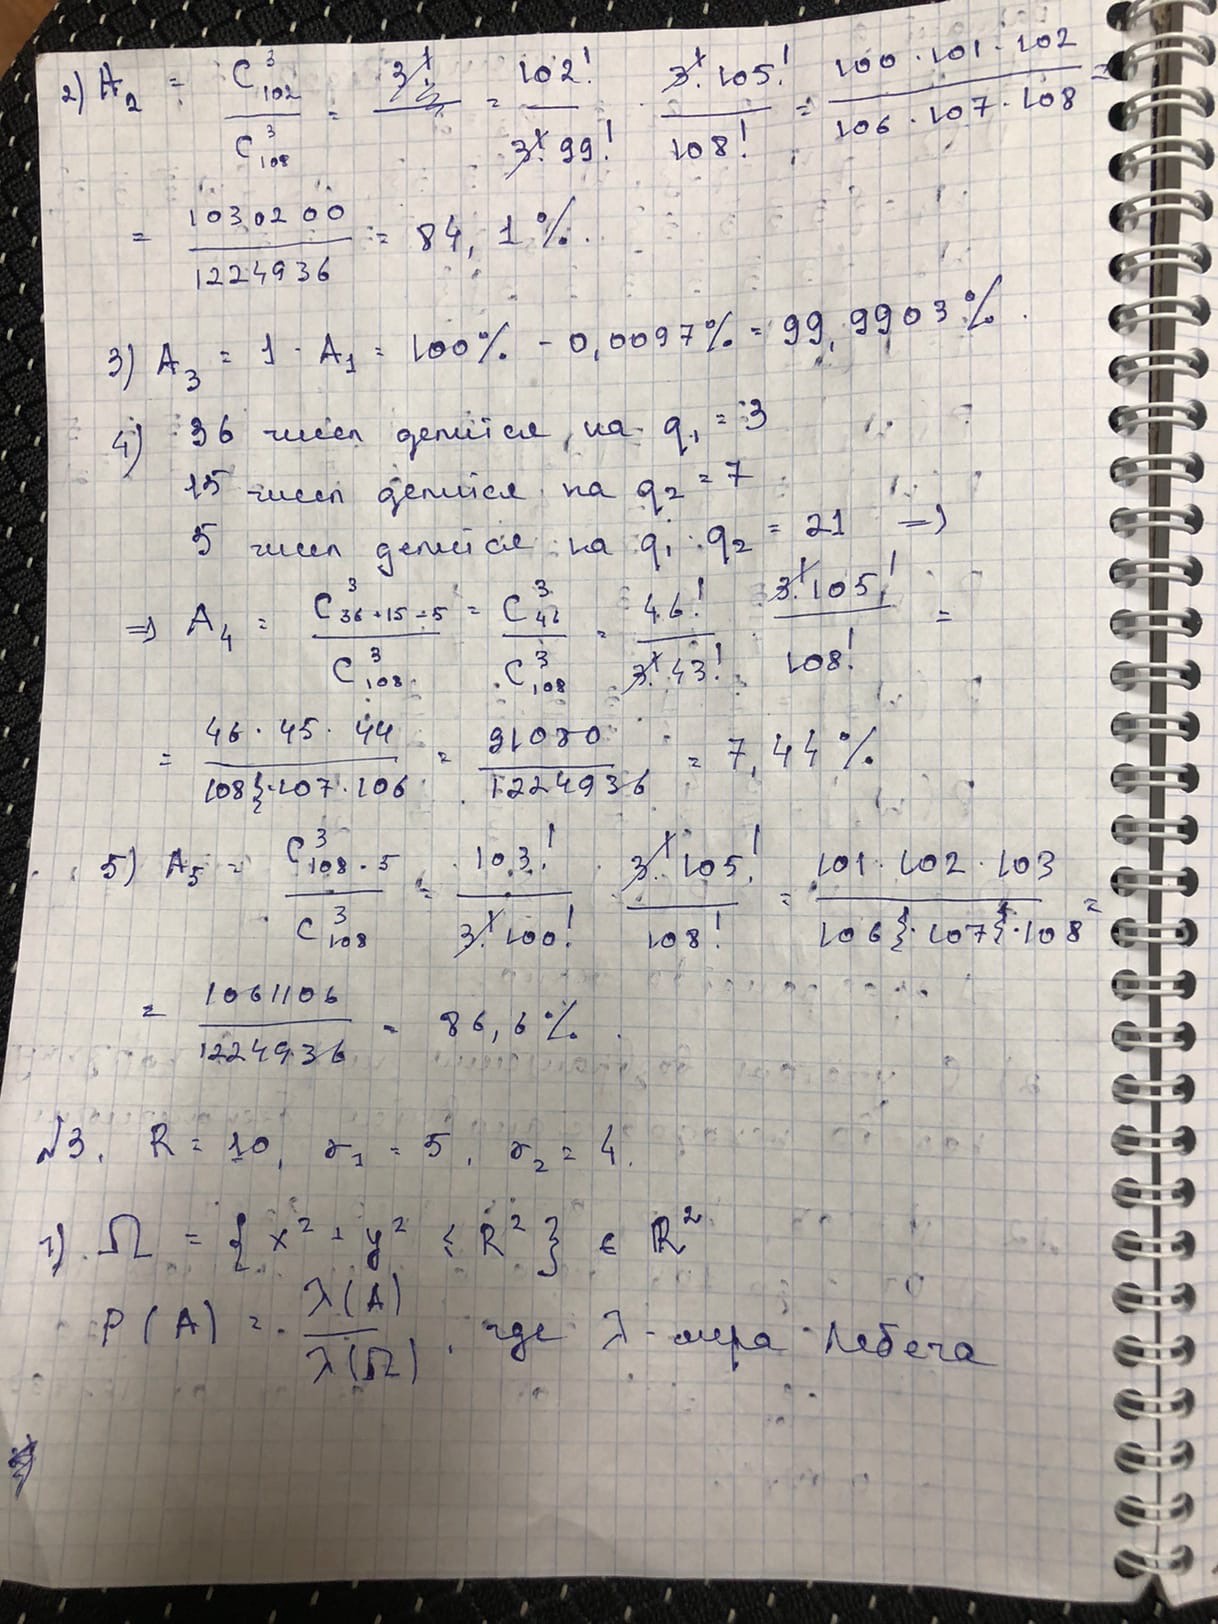 2) A₂ = C³₁₀₂ / C³₁₀₈ = = 102! / 3! 99! · 3! 105! / 108! = 100 · 101 · 102 / 106 · 107 · 108 =
= 1030200 / 1224936 = 84,1%.
3) A₃ = 1 - A₁ = 100% - 0,0097% = 99,9903%.
4) 36 чисел делится на q₁ = 3
15 чисел делится на q₂ = 7
5 чисел делится на q₁ · q₂ = 21 ⇒
⇒ A₄ = C³₃₆₊₁₅₋₅ / C³₁₀₈ = C³₄₆ / C³₁₀₈ = 46! / 3! 43! · 3! 105! / 108! =
= 46 · 45 · 44 / 108 · 107 · 106 = 91080 / 1224936 = 7,44%
5) A₅ = C³₁₀₈₋₅ / C³₁₀₈ = 103! / 3! 100! · 3! 105! / 108! = 101 · 102 · 103 / 106 · 107 · 108 =
= 1061106 / 1224936 = 86,6%.
№3. R = 10, r₁ = 5, r₂ = 4.
1) Ω = { x² + y² ≤ R² } ∈ R²
P(A) = λ(A) / λ(Ω), где λ - мера Лебега